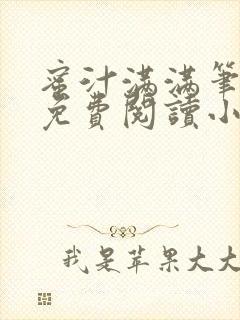 蜜汁满满筆
免費閱讀小
我是苹果大大